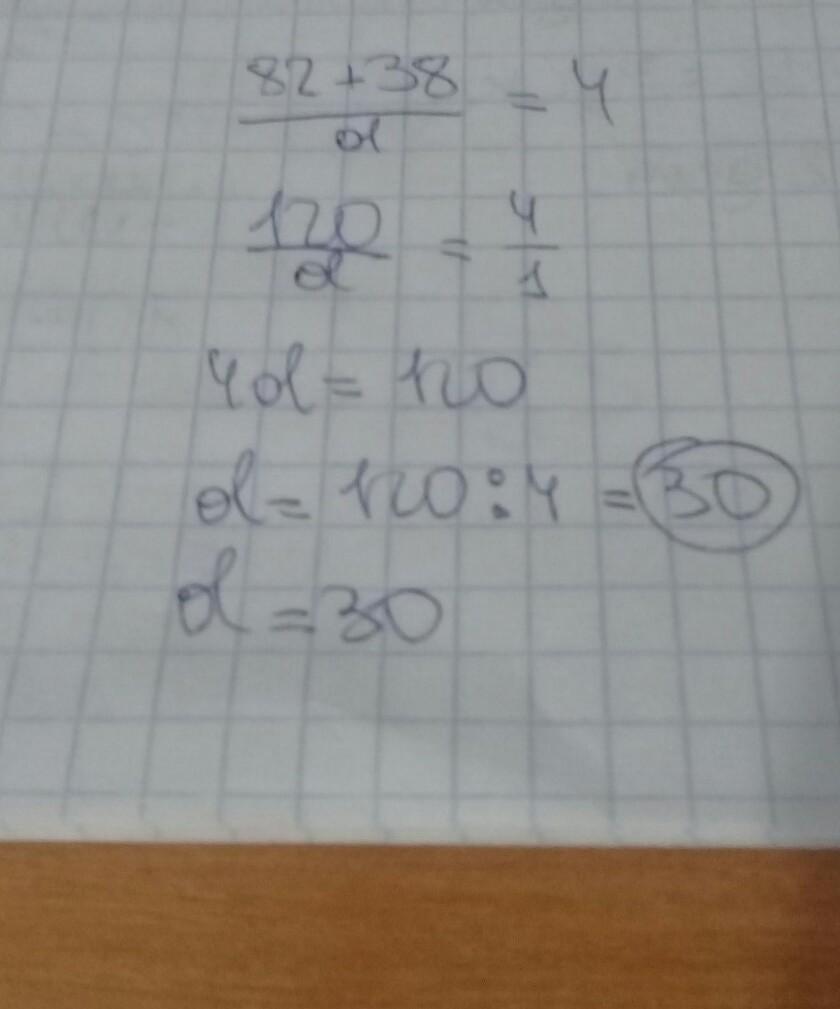 82+38
d
= 4
120
d
=
4
1
4d = 120
d = 120:4 = 30
d = 30